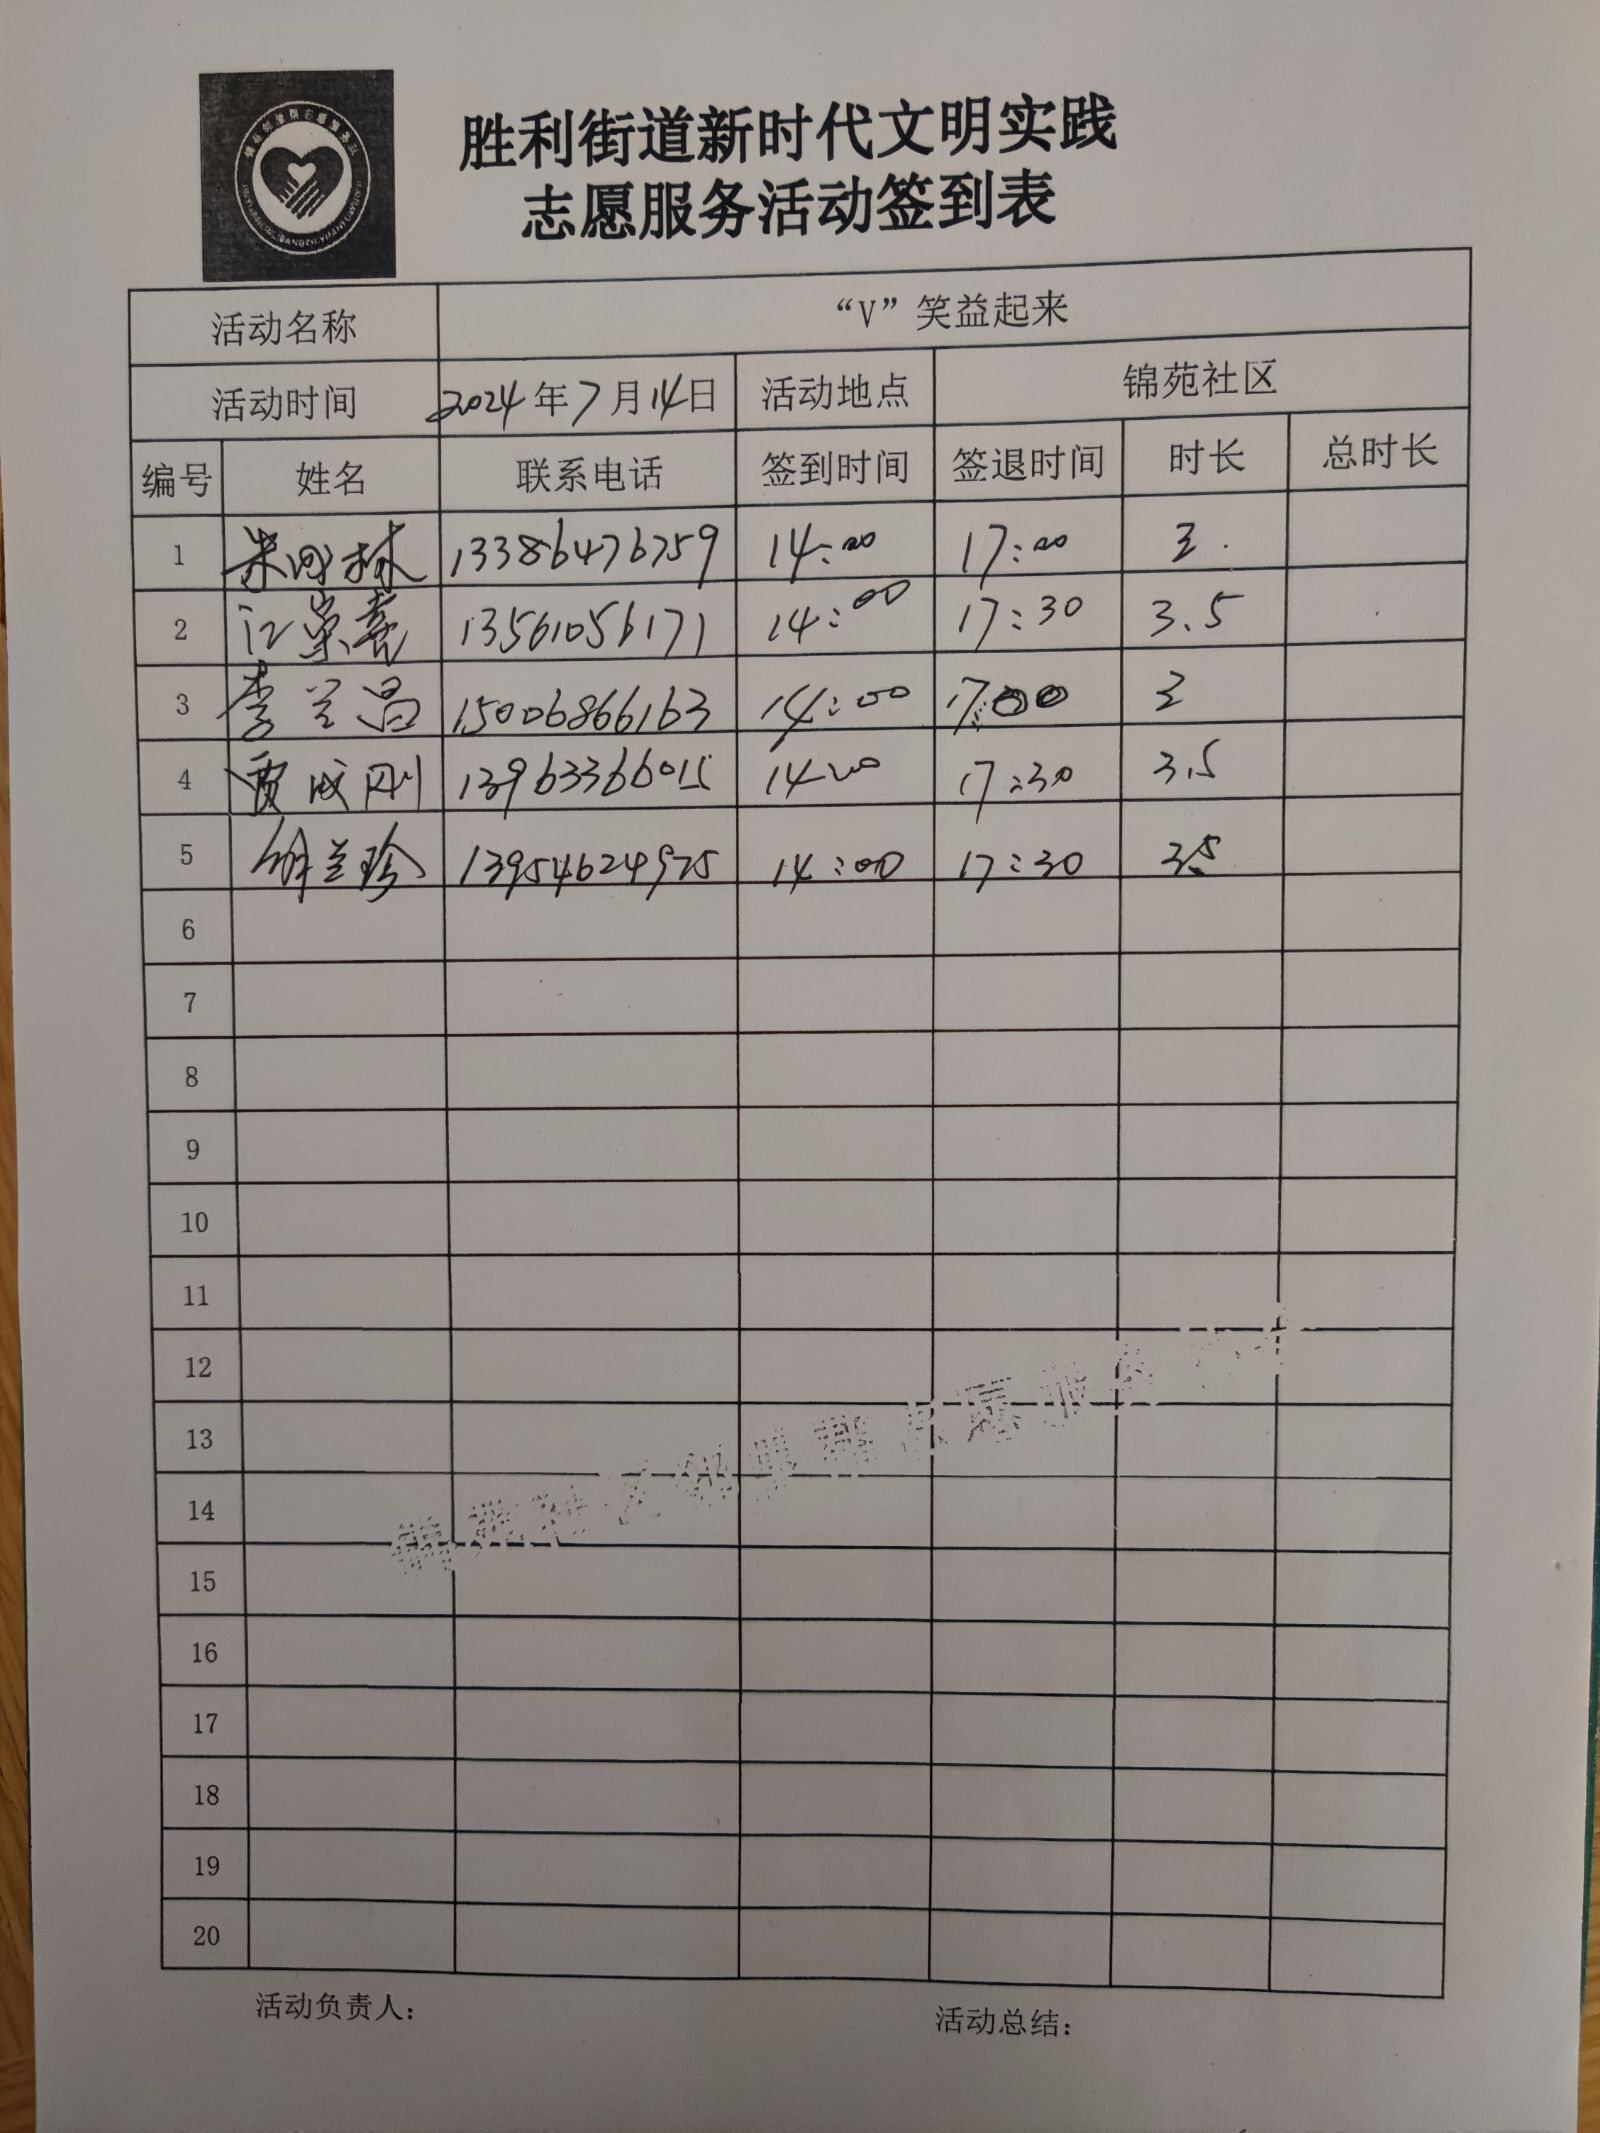 胜利街道新时代文明实践
志愿服务活动签到表
活动名称 “V”笑益起来
活动时间 2024年7月14日 活动地点 锦苑社区
编号 姓名 联系电话 签到时间 签退时间 时长 总时长
1 林 13386476759 14:00 17:00 3.
2 江崇喜 13561056171 14:00 17:30 3.5
3 李兰昌 15006866163 14:00 17:00 3
4 贾成刚 13963366015 14:00 17:30 3.5
5 胡兰珍 13954624975 14:00 17:30 3.5
6
7
8
9
10
11
12
13
14
15
16
17
18
19
20
活动负责人: 活动总结: